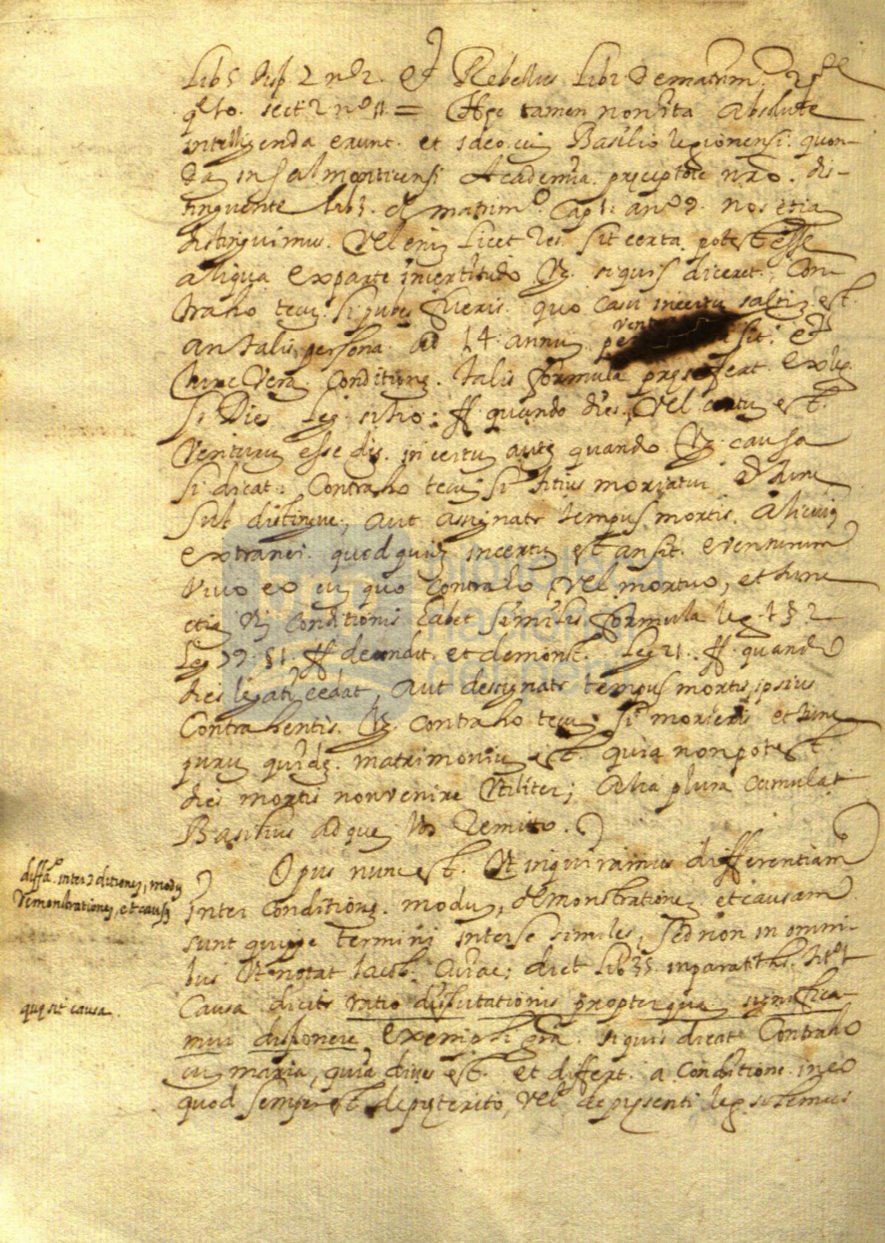 Lib 5 disp. 2 nº 2. et Rebellus Lib 2 de matrim. 2 pte
q. 10. sect 2 nº 11 = Hæc tamen non ita absolute
intelligenda erunt. et ideo cũ Basilio legionensi. quon-
dã in salmanticensi Academia. preceptore nrõ. dis-
tinguente lib 3. de matrim.º Cap 1. a nº 9. nos etiã
distinguimus. Vel enim licet res sit certa potest esse
aliqua ex parte incertitudo Vg. si quis diceret. Con-
traho tecũ si pubes fueris. quo casu incertũ saltim est.
an talis persona ad 14 annũ per sit: et
tunc vera Conditione. talis formula
Si Dies leg. sitio: ff quando dies. Vel certũ est.
Venturũ esse diẽ. incertũ autẽ quando Vg. causa
Si dicat: Contraho tecũ si titius moriatur et tunc
sub distingue; aut assignatr tempus mortis. alicuiq
extranei. quod quiẽ incertũ est an sit. eventurum
Vivo eo cũ quo Contraho vel mortuo, et tunc
etiã Vĩ Conditionis habet similis formula leg. 1 § 2
Leg 79. § 1. ff de condit. et demonst. Leg 21. ff quando
dies legati cedat, aut designatr tempus mortis ipsius
Contrahentis. Vg. contraho tecũ si morieris et tunc
purũ quidẽ. matrimoniũ est. quia non potest.
dies mortis non venire Vtiliter; Alia plura Cumulat
Basilius ad quẽ vos Remitto.
diffã. inter 9ditionẽ, modũ
demonstrationẽ, et causã
Opus nunc est. Vt inquiramus differentiam
inter Conditionẽ. modũ, demonstrationẽ et causam
sunt quippe termini inter se similes, sed non in omni-
bus Vt notat Iacob. Curac; dict lib 35. in paratitl.
quę sit causa.
Causa dicitr ratio disputationis propter quã significa-
mus disponere Exempli grã. si quis dicat Contraho
cũ maria, quia dives est. et differt. a Conditione in eo
quod semper est de præterito, vel de presenti leg